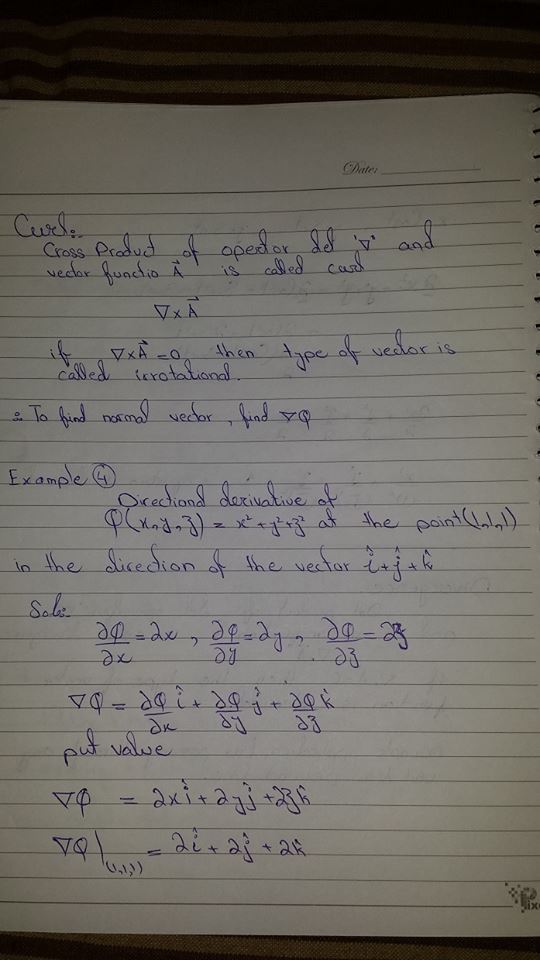 Date:
Curl:-
Cross Product of opertor del '∇' and
vector functio A⃗ is called curl
∇×A⃗
if ∇×A⃗ = 0 then type of vector is
called irrotational.
:- To find normal vector, find ∇φ
Example ④
Directional derivative of
φ(x,y,z) = x² + y² + z² at the point (1,1,1)
in the direction of the vector î + ĵ + k̂
Sol:-
∂φ/∂x = 2x , ∂φ/∂y = 2y , ∂φ/∂z = 2z
∇φ = ∂φ/∂x î + ∂φ/∂y ĵ + ∂φ/∂z k̂
put value
∇φ = 2xî + 2yĵ + 2zk̂
∇φ|(1,1,1) = 2î + 2ĵ + 2k̂